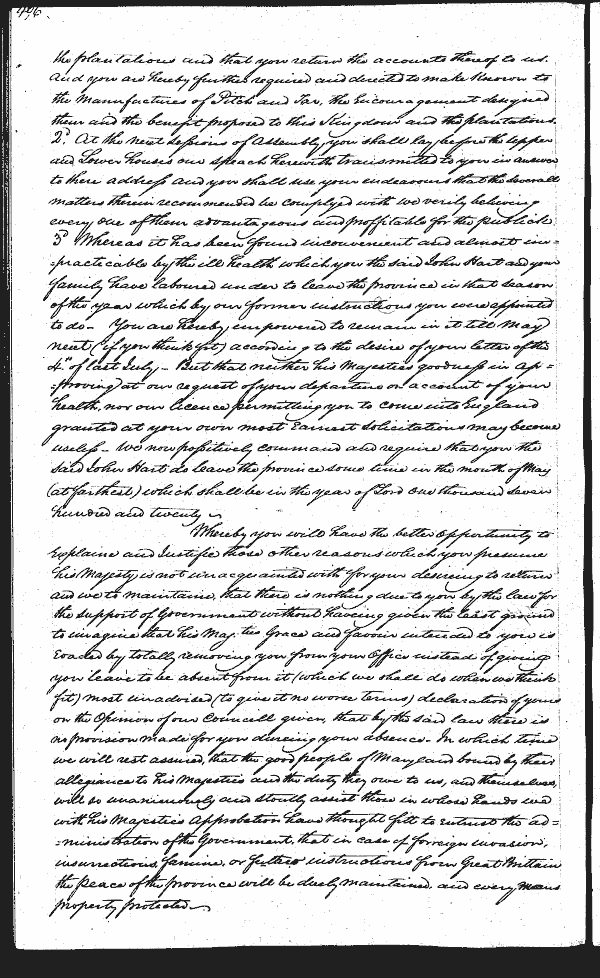 496.
the plantations and that you return the accounts thereof to us.
And you are hereby further required and directed to make known to
the Manufactures of Pitch and Tar, the Encouragement designed
them and the benefit proposed to this Kingdom and the plantations.
2d. At the next sessions of Assembly, you shall lay before the upper
and Lower houses our speach herewith transmitted to you in answer
to there address and you shall use your endeavours that the severall
matters therein recommended be complyed with we verily believing
every one of them advantageous and proffitable for the publick
3d Whereas it has been found inconvenient and almost im=
=practicable by the ill health which you the said John Hart and your
family have laboured under to leave the province in that season
of the year which by our former instructions you were appointed
to do - You are hereby impowered to remain in it till May
next (if you think fit) according to the desire of your letter of the
4th of last July - But that neither his Majesties goodness in ap=
=proving at our request of your departure on account of your
health, nor our licence permitting you to come into England
granted at your own most Earnest solicitations may become
useless - We now possitively command and require that you the
said John Hart do leave the province some time in the month of May
(at farthest) which shall be in the year of Lord One thousand seven
hundred and twenty
Whereby you will have the better opportunity to
Explaine and Justifie those other reasons which you presume
his Majesty is not unacquainted with for your desireing to return
and we to maintaine, that there is nothing due to you by the law for
the support of Government without haveing given the least ground
to imagine that his Maj:ties Grace and favour intended to you is
Evaded by totally removeing you from your Office instead of giveing
you leave to be absent from it (which we shall do when we think
fit) most unadvised (to give it no worse terms) declaration of yours
on the Opinion of our Councill given, that by the said law there is
no provision made for you dureing your absence - In which time
we will rest assured, that the good people of Maryland bound by their
allegiance to his Majesties and the duty they owe to us, and themselves,
will so unanimously and stoutly assist those in whose hands we
with his Majesties Approbation have thought fitt to entrust the ad=
=ministration of the Government, that in case of foreign invasion,
insurrections, famine, or further instructions from Great Britain
the peace of the province will be duely maintained, and every mans
property protected